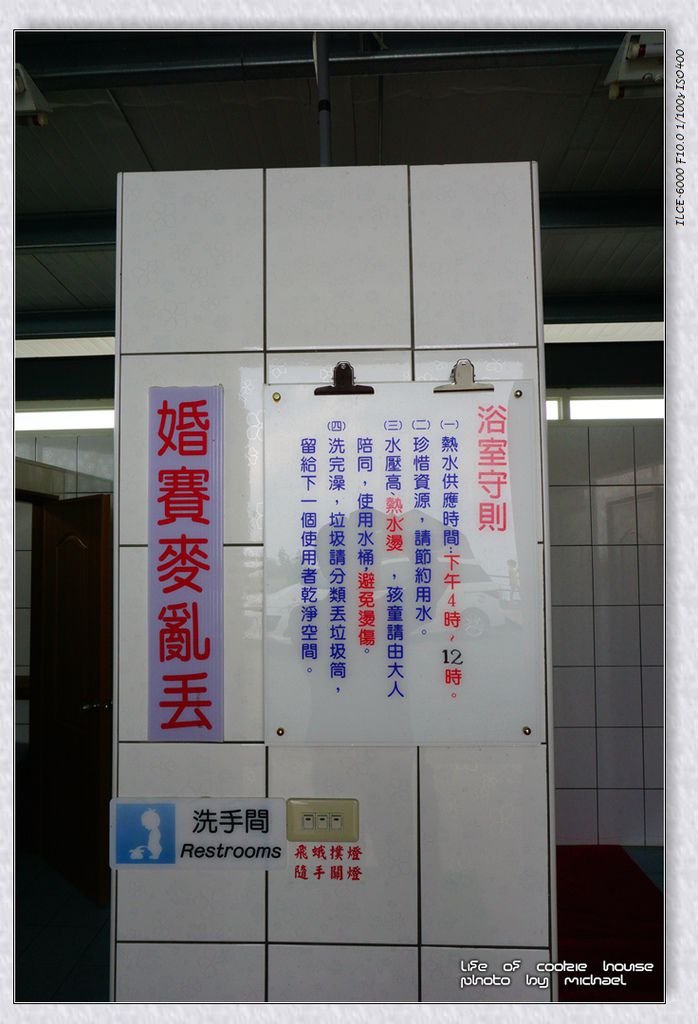 浴室守則
㈠熱水供應時間:下午4時~12時。
㈡珍惜資源，請節約用水。
㈢水壓高、熱水燙，孩童請由大人
陪同，使用水桶，避免燙傷。
㈣洗完澡，垃圾請分類丟垃圾筒，
留給下一個使用者乾淨空間。
婚賽麥亂丟
洗手間
Restrooms
飛蛾撲燈
隨手關燈
ILCE-6000 F10.0 1/100s ISO400
Life of cookie house
photo by michael